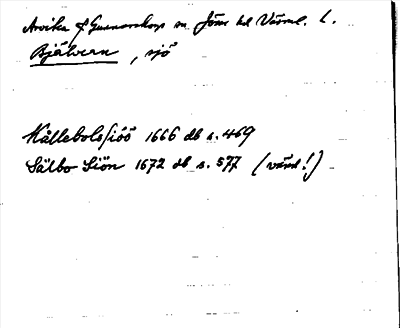 Arvika f Gunnarskog sn Jösse hd Värml. l.
Bjälvern, sjö
Kållebolssiöö 1666 db s. 469
Sälbo Siön 1672 db s. 577 (värd!)